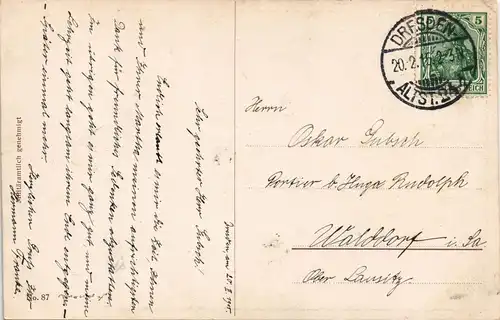 DRESDEN-
20.2.15
ALTST. 24
5
REICH
Herrn
Oskar Gubsch
Portier b/ Hugo Rudolph
Walddorf i. Sa
Ober Lausitz
Dresden, am 20. II. 1915.
Sehr geehrter Herr Gubsch!
Endlich erlaubt es mir die Zeit Ihnen
und Ihrer Martha meinen aufrichtigsten
Dank für freundliches Gedenken abzustatten.
Im übrigen geht es mir ganz gut und meine
Lehrzeit geht langsam ihrem Ende entgegen.
Später einmal mehr.
Herzlichen Gruß Ihr
Hermann Franke.
Militäramtlich genehmigt
87